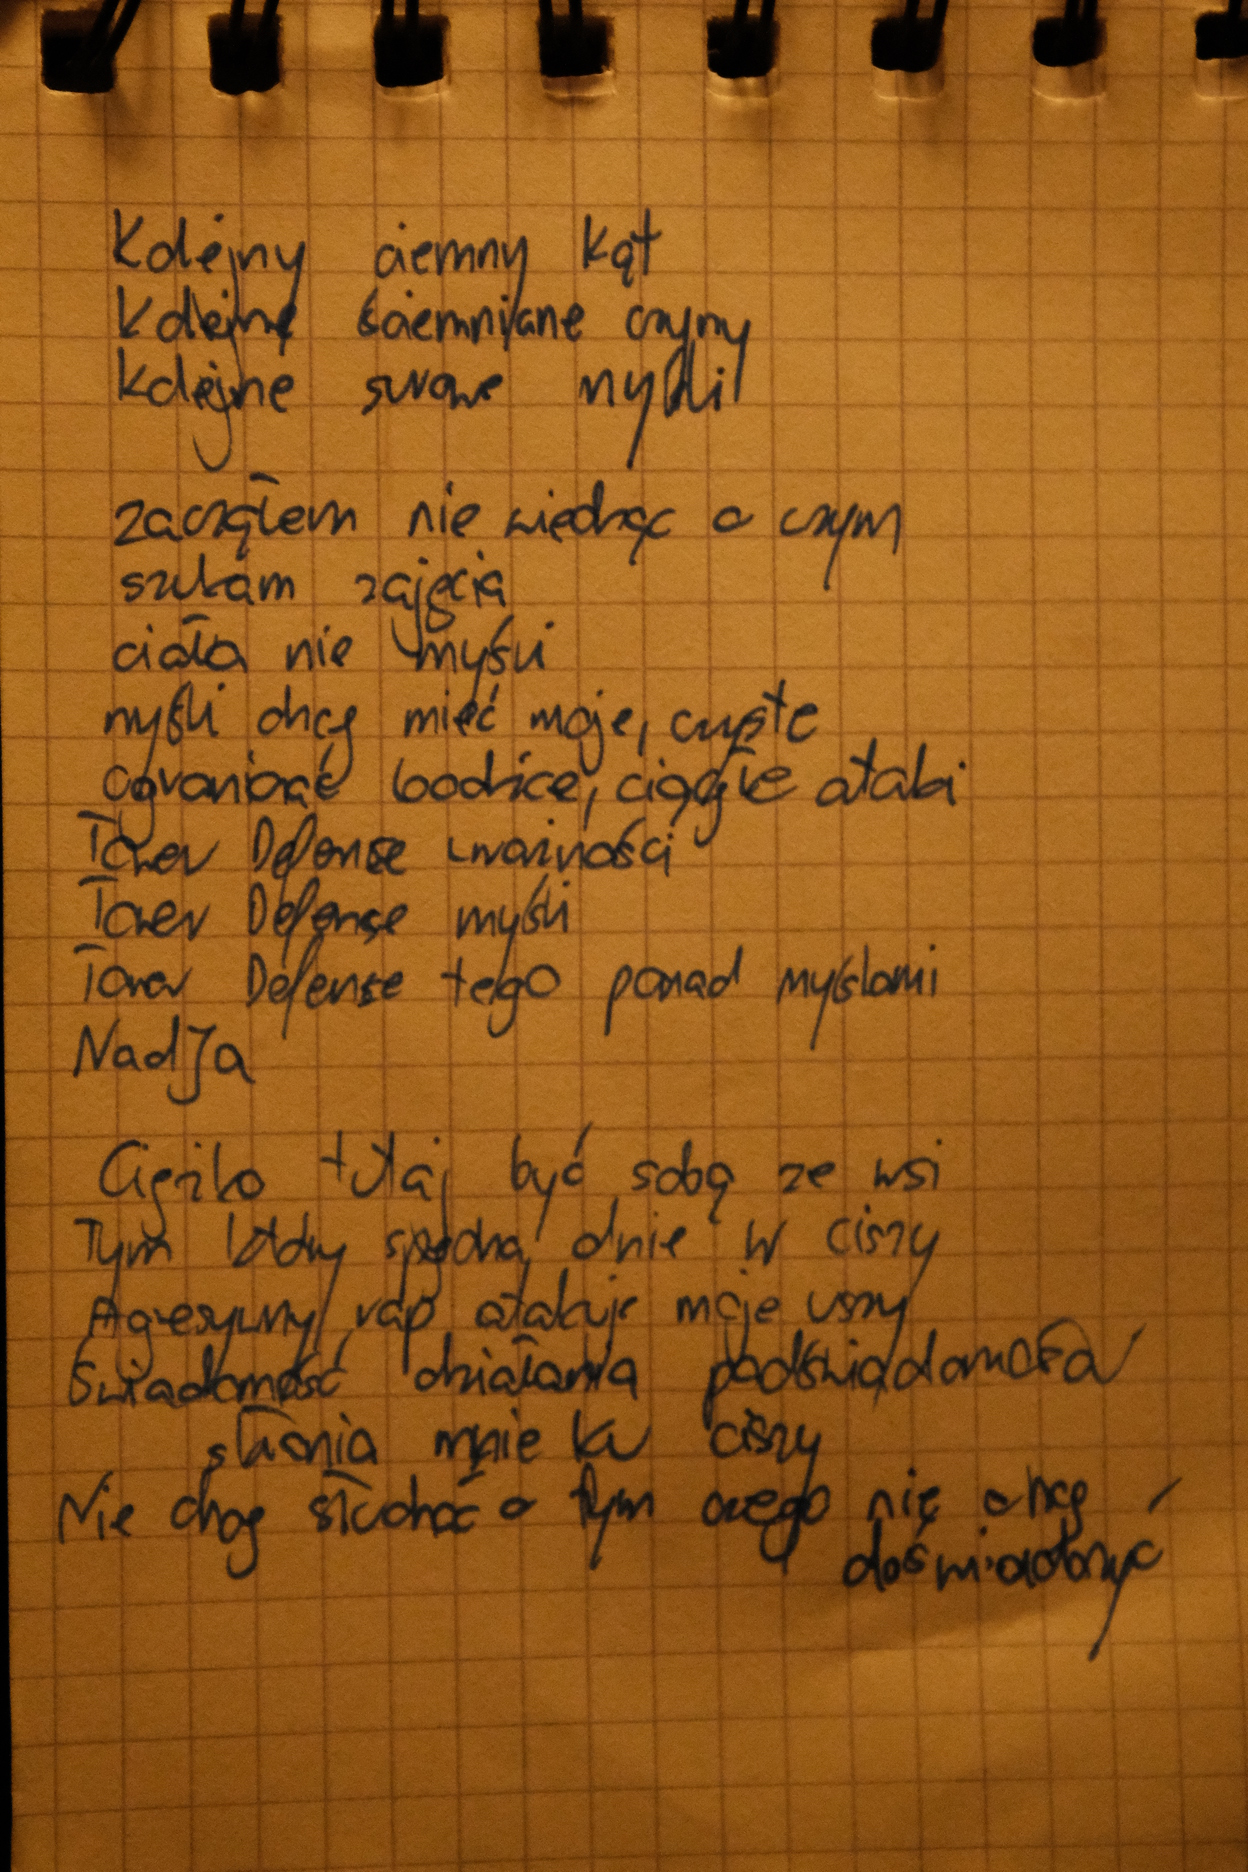 Kolejny ciemny kąt
Kolejne ściemniane czyny
Kolejne surowe myśli
zacząłem nie wiedząc o czym
szukam zajęcia
ciała nie myśli
myśli chcę mieć moje, czyste
ograniczać bodźce, ciągłe ataki
Tower Defense uważności
Tower Defense myśli
Tower Defense tego ponad myślami
NadJa
Ciężko tutaj być sobą ze wsi
Tym który spędza dnie w ciszy
Agresywny rap atakuje moje uszy
Świadomość działania podświadomości
skłania mnie ku ciszy
Nie chcę słuchać o tym czego nie chcę
doświadczyć